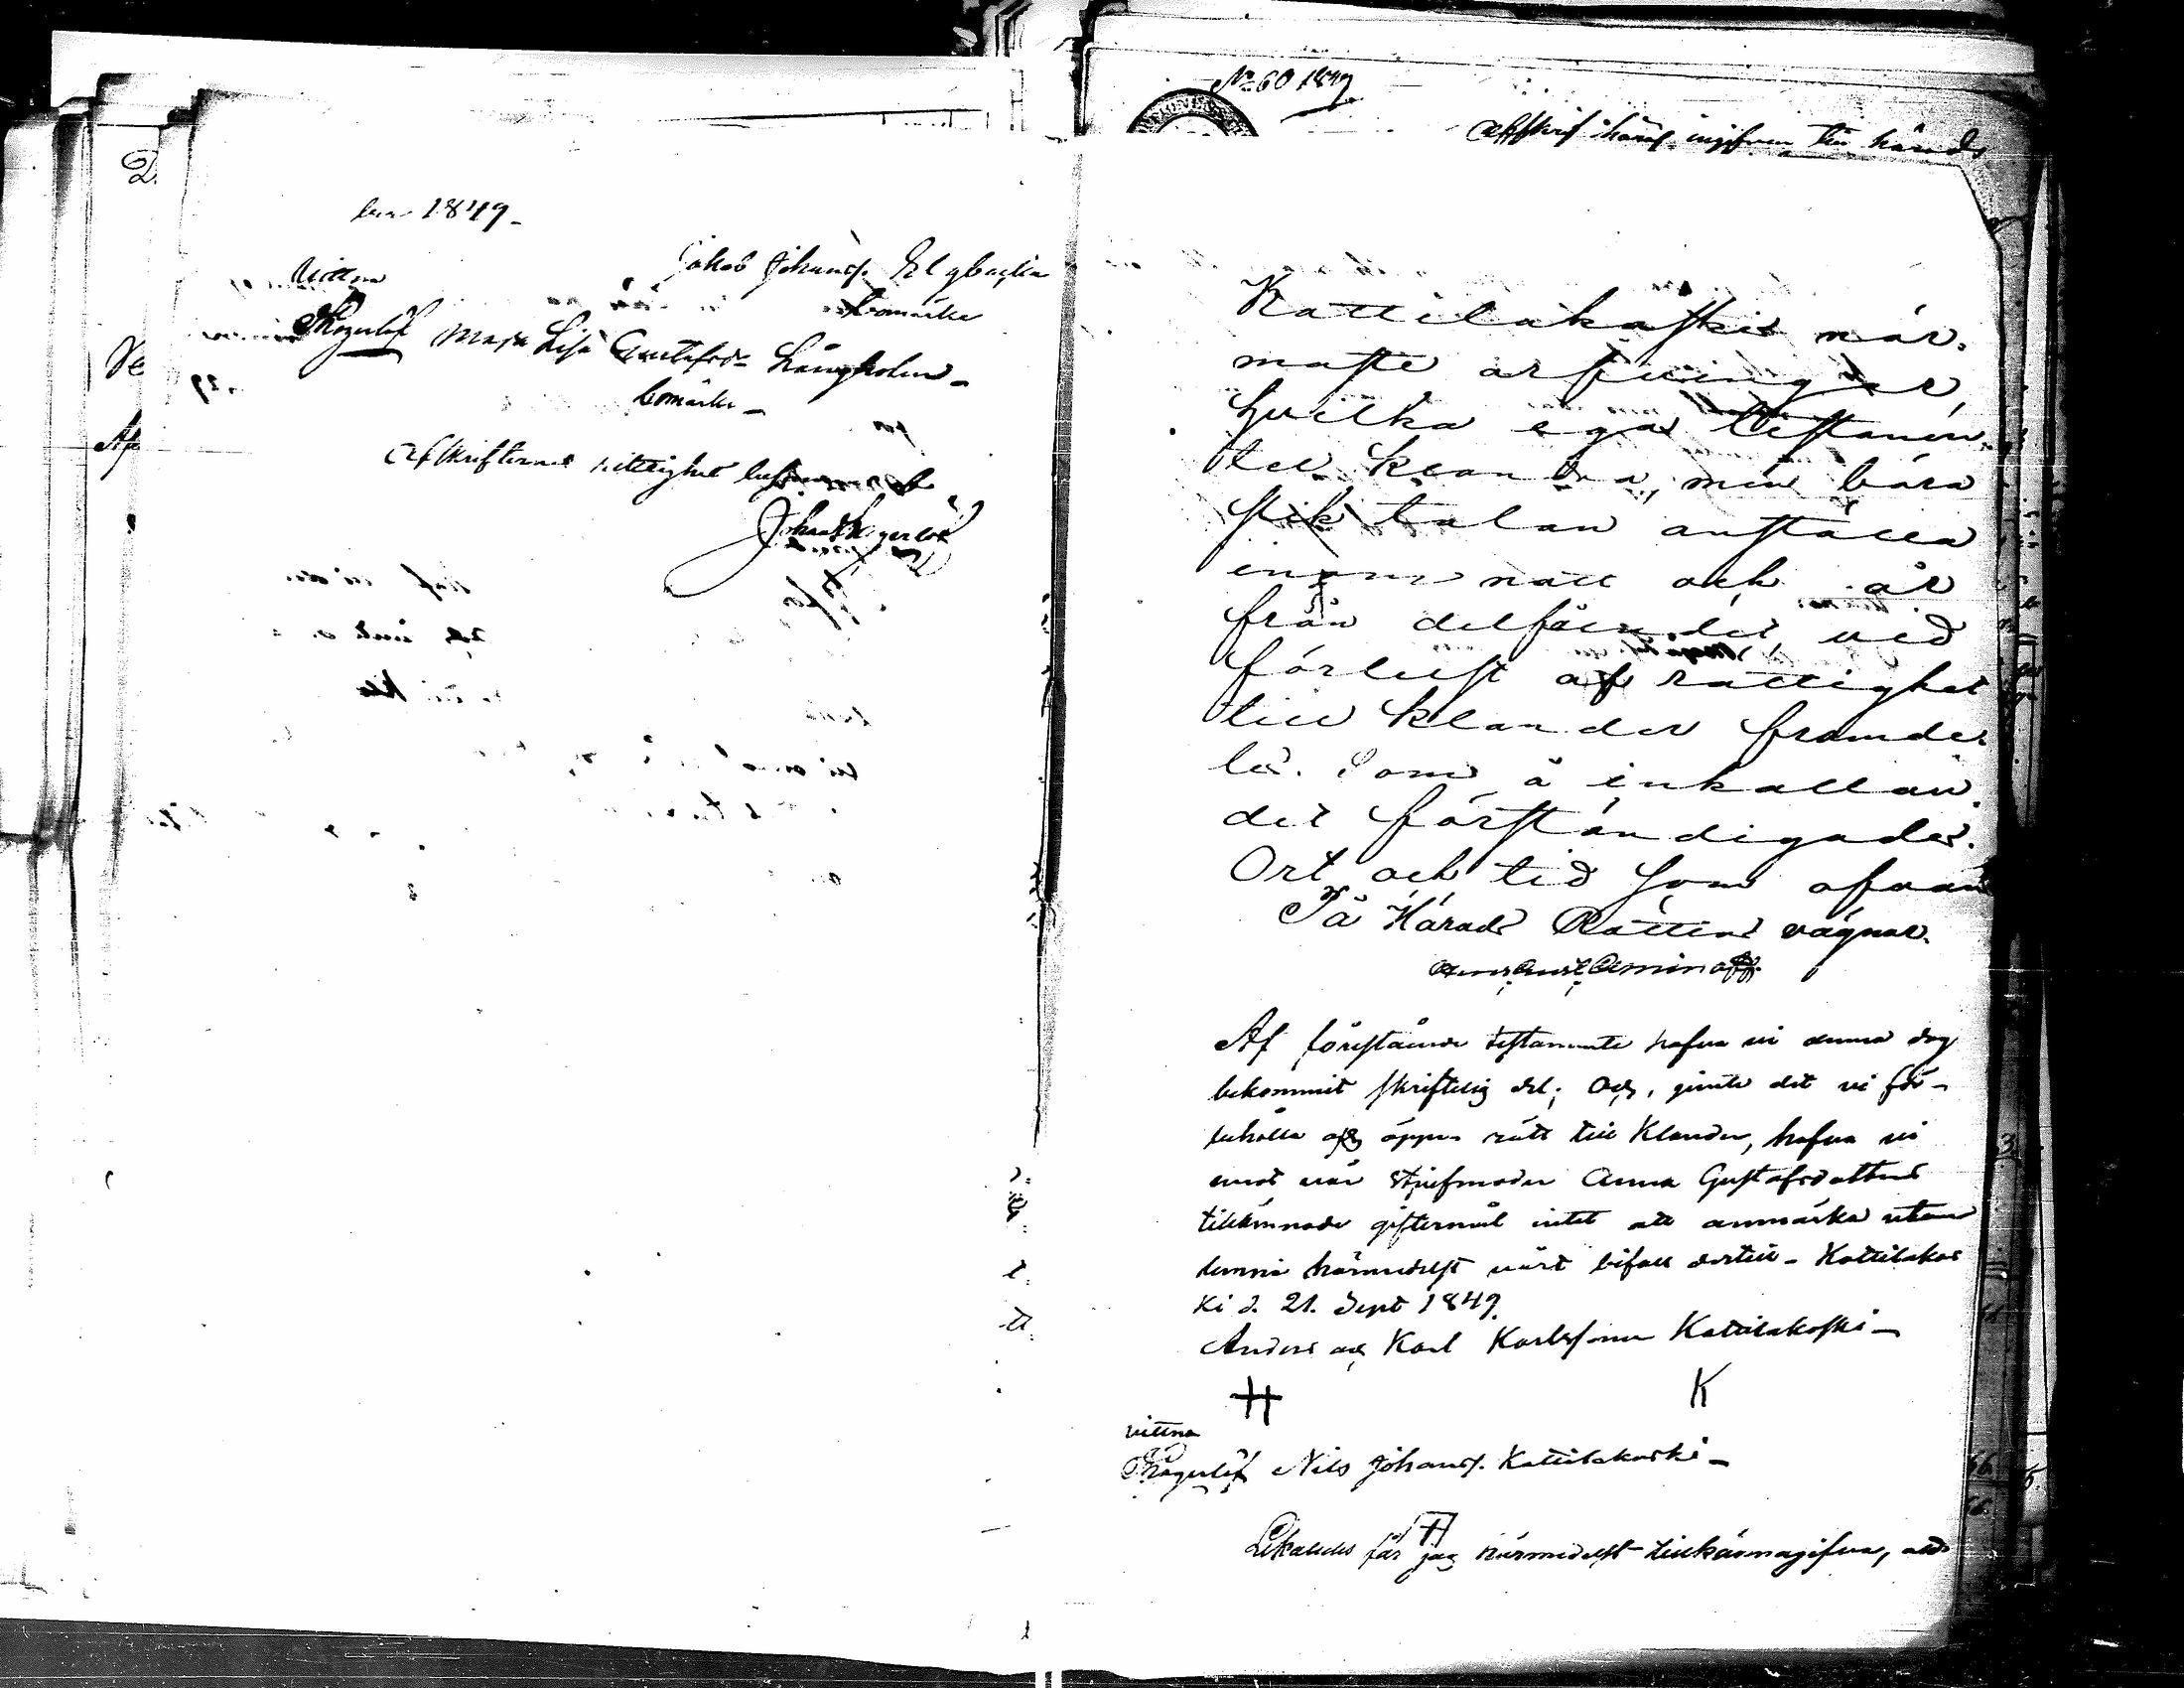 ber 1849.
Jakob Johansf.
bomärke
Vittna
Skogerlöf Maja Lisa Gustafsd. Långholm
bomärke
Afskrifternes riktighet
Johan Skogerlöf
No 60 1849
Afskrift häraf ingifven till härads
Kattilakoski när.
maste arfvingar,
hvilka ega testamen.
tet klandra, men böra
slik talan anställa
inom natt och år
från delfåendet, vid
förlust af rättighet
till klander framde.
les. Som å inkallan
det förständigades.
Ort och tid som ofvan
På Härads Rättens vägnar.
Aminoff.
Af förestående testamente hafva vi denna dag
bekommit skriftelig del; och, jemte det vi för-
behålla oss öppen rätt till Klander, hafva vi
emot vår stjufmoder Anna Gustafsdotters
tillämnade giftermål intet att anmärka utan
lemna härmedelst vårt bifall dertill. Kattilakos
ki d. 21. Sept 1849.
Anders och Karl Karlssöner Kattilakoski
H K
vittna
Skogerlöf Nils Johansf. Kattilakoski
Likaledes får jag härmedelst tillkännagifva, att